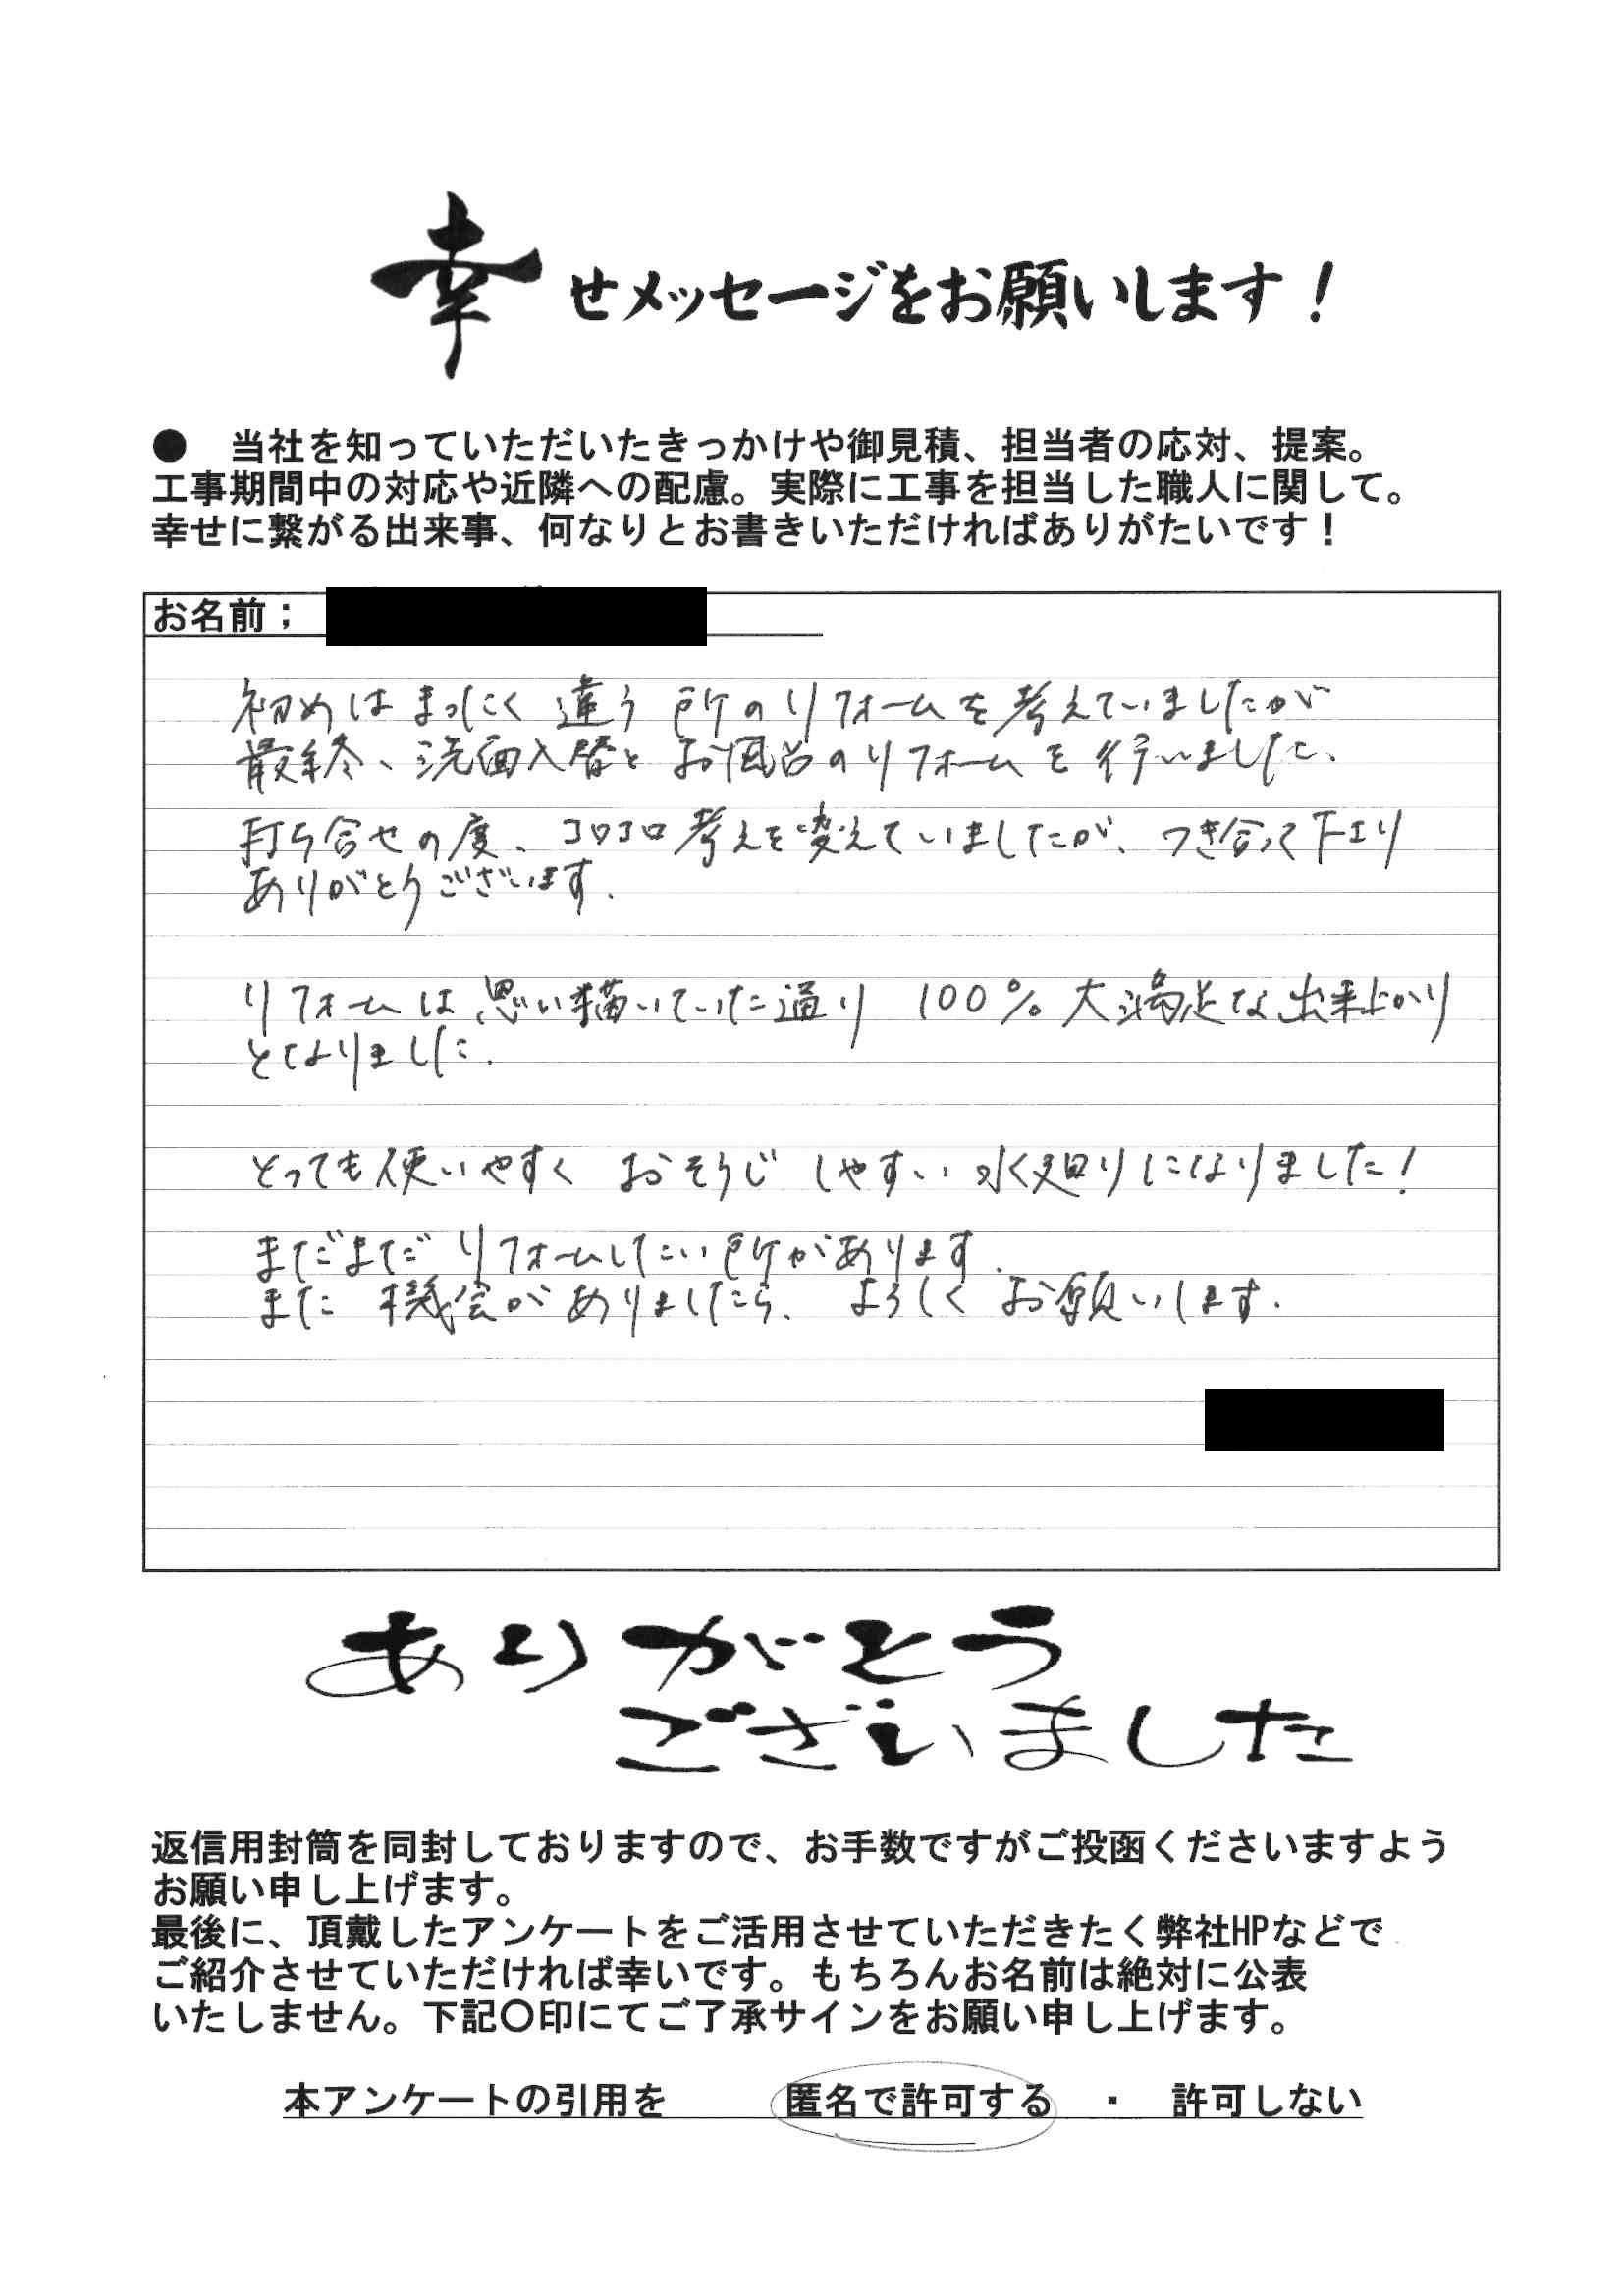 幸せメッセージをお願いします！
● 当社を知っていただいたきっかけや御見積、担当者の応対、提案。
工事期間中の対応や近隣への配慮。実際に工事を担当した職人に関して。
幸せに繋がる出来事、何なりとお書きいただければありがたいです！
お名前；
初めはまったく違う所のリフォームを考えていましたが
最終、洗面入替とお風呂のリフォームを行いました、
打ち合せの度、コロコロ考えを変えていましたが、つき合って下エり
ありがとうございます.
リフォームは思い描いていた通り 100% 大満足な出来上がり
となりました.
とっても使いやすく おそうじ しやすい 水廻りになりました！
まだまだ リフォームしたい所があります.
また 機会がありましたら、よろしく お願いします.
ありがとう
ございました
返信用封筒を同封しておりますので、お手数ですがご投函くださいますよう
お願い申し上げます。
最後に、頂戴したアンケートをご活用させていただきたく弊社HPなどで
ご紹介させていただければ幸いです。もちろんお名前は絶対に公表
いたしません。下記〇印にてご了承サインをお願い申し上げます。
本アンケートの引用を 匿名で許可する ・ 許可しない